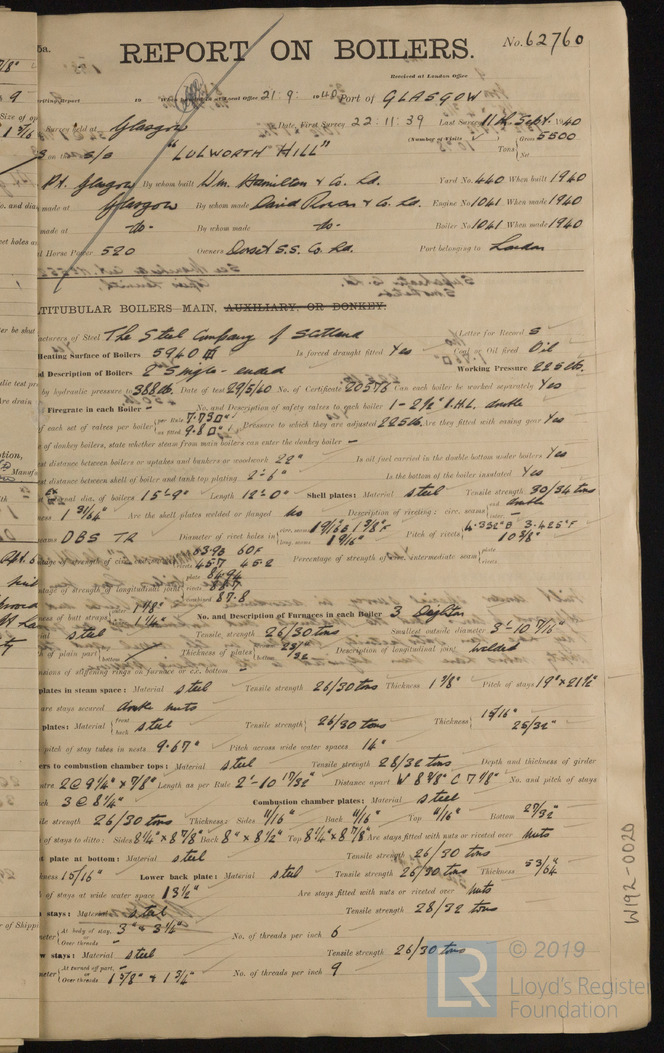 5a. REPORT ON BOILERS. No. 62760
Received at London Office
writing Report 19 When handed in at Local Office 21 : 9 : 1940 Port of GLASGOW
Survey held at Glasgow Date, First Survey 22 : 11 : 39 Last Survey 11th Sept. 1940
(Number of Visits Gross 5500
on S/S "LULWORTH HILL" Tons Net
Pt. Glasgow By whom built Wm. Hamilton & Co. Ld. Yard No. 440 When built 1940
made at Glasgow By whom made David Rowan & Co. Ld. Engine No. 1041 When made 1940
made at -do- By whom made -do- Boiler No. 1041 When made 1940
Horse Power 520 Owners Dorset S.S. Co. Ld. Port belonging to London
TITUBULAR BOILERS—MAIN, AUXILIARY, OR DONKEY.
facturers of Steel The Steel Company of Scotland Letter for Record S
Heating Surface of Boilers 5940 Is forced draught fitted Yes Oil fired Oil
d Description of Boilers 2 Single-ended Working Pressure 225 lb.
by hydraulic pressure to 388 lb. Date of test 29/5/40 No. of Certificate 20576 Can each boiler be worked separately Yes
Firegrate in each Boiler - No. and Description of safety valves to each boiler 1-2½" I.H.L. double
of each set of valves per boiler per Rule 7.75□" as fitted 9.80□" Pressure to which they are adjusted 225 lb. Are they fitted with easing gear Yes
of donkey boilers, state whether steam from main boilers can enter the donkey boiler -
st distance between boilers or uptakes and bunkers or woodwork 22" Is oil fuel carried in the double bottom under boilers Yes
st distance between shell of boiler and tank top plating 2'-6" Is the bottom of the boiler insulated Yes
nal dia. of boilers 15'-9" Length 12'-0" Shell plates: Material steel Tensile strength 30/34 tons
1 31/64" Are the shell plates welded or flanged No Description of riveting: circ. seams end double inter. -
seams DBS TR Diameter of rivet holes in circ. seams 1 9/16 B 1 5/8" F long. seams 1 9/16" Pitch of rivets 4.332" B 3.425" F 10 5/8"
Percentage of strength of circ. intermediate seam plate rivets
tage of strength of longitudinal joint plate 84.94 rivets combined 87.8
ss of butt straps 1 1/8" 1 1/4" No. and Description of Furnaces in each Boiler 3 Deighton
steel Tensile strength 26/30 tons Smallest outside diameter 3'-10 7/16"
of plain part Thickness of plates bottom Description of longitudinal joint welded
ensions of stiffening rings on furnace or c.c. bottom -
plates in steam space: Material steel Tensile strength 26/30 tons Thickness 1 7/8" Pitch of stays 19" x 21½"
are stays secured double nuts
plates: Material front back steel Tensile strength 26/30 tons Thickness 15/16" 25/32"
pitch of stay tubes in nests 9.67" Pitch across wide water spaces 14"
ers to combustion chamber tops: Material steel Tensile strength 28/32 tons Depth and thickness of girder
tre 2@9¼" x 7/8" Length as per Rule 2'-10 17/32" Distance apart W 8 5/8" C 7 1/8" No. and pitch of stays
ch 3@8¼" Combustion chamber plates: Material steel
ile strength 26/30 tons Thickness: Sides 11/16" Back 11/16" Top 11/16" Bottom 27/32"
of stays to ditto: Sides 8¼" x 8 7/8" Back 8" x 8½" Top 8¼" x 8 7/8" Are stays fitted with nuts or riveted over nuts
t plate at bottom: Material steel Tensile strength 26/30 tons
kness 15/16" Lower back plate: Material steel Tensile strength 26/30 tons Thickness 53/64"
of stays at wide water space 13½" Are stays fitted with nuts or riveted over nuts
stays: Material steel Tensile strength 28/32 tons
meter At body of stay, 3" & 3¼" or Over threads - No. of threads per inch 6
w stays: Material steel Tensile strength 26/30 tons
meter At turned off part, - or Over threads 1 5/8" & 1 3/4" No. of threads per inch 9
W192-0020
LR © 2019
Lloyd's Register
Foundation